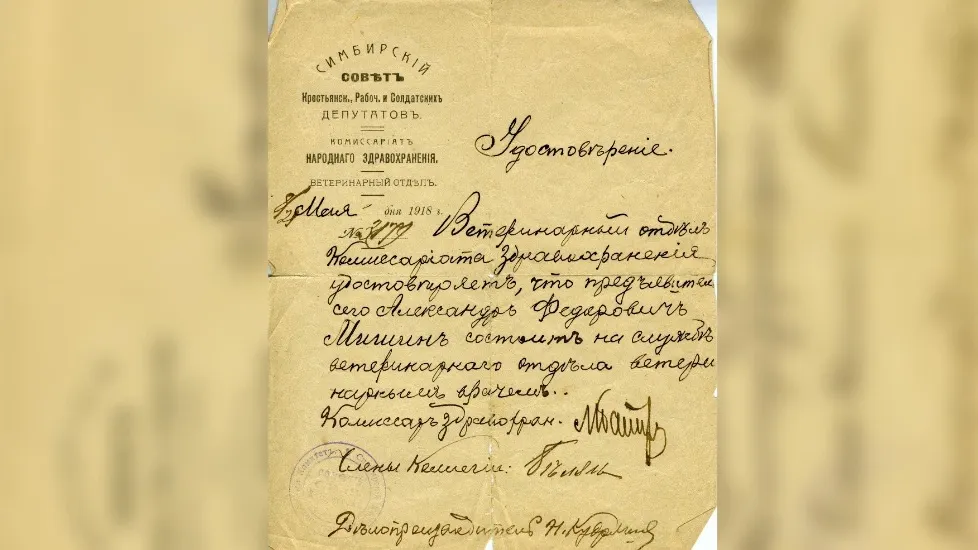 СИМБИРСКІЙ
СОВѢТЪ
Крестьянск., Рабоч. и Солдатскихъ
ДЕПУТАТОВЪ.
КОМИССАРІАТЪ
НАРОДНАГО ЗДРАВОХРАНЕНІЯ.
ВЕТЕРИНАРНЫЙ ОТДѢЛЪ.
Мая дня 1918 г.
№
Удостовѣреніе.
Ветеринарный отдѣлъ
Комиссаріата Здравохраненія
удостовѣряетъ, что предъявитель
сего Александръ Федоровичъ
Мишинъ состоитъ на службѣ
ветеринарнаго отдѣла ветери
нарнымъ врачемъ..
Комиссаръ Здравохран.
Члены Коллегіи:
Дѣлопроизводитель Н.